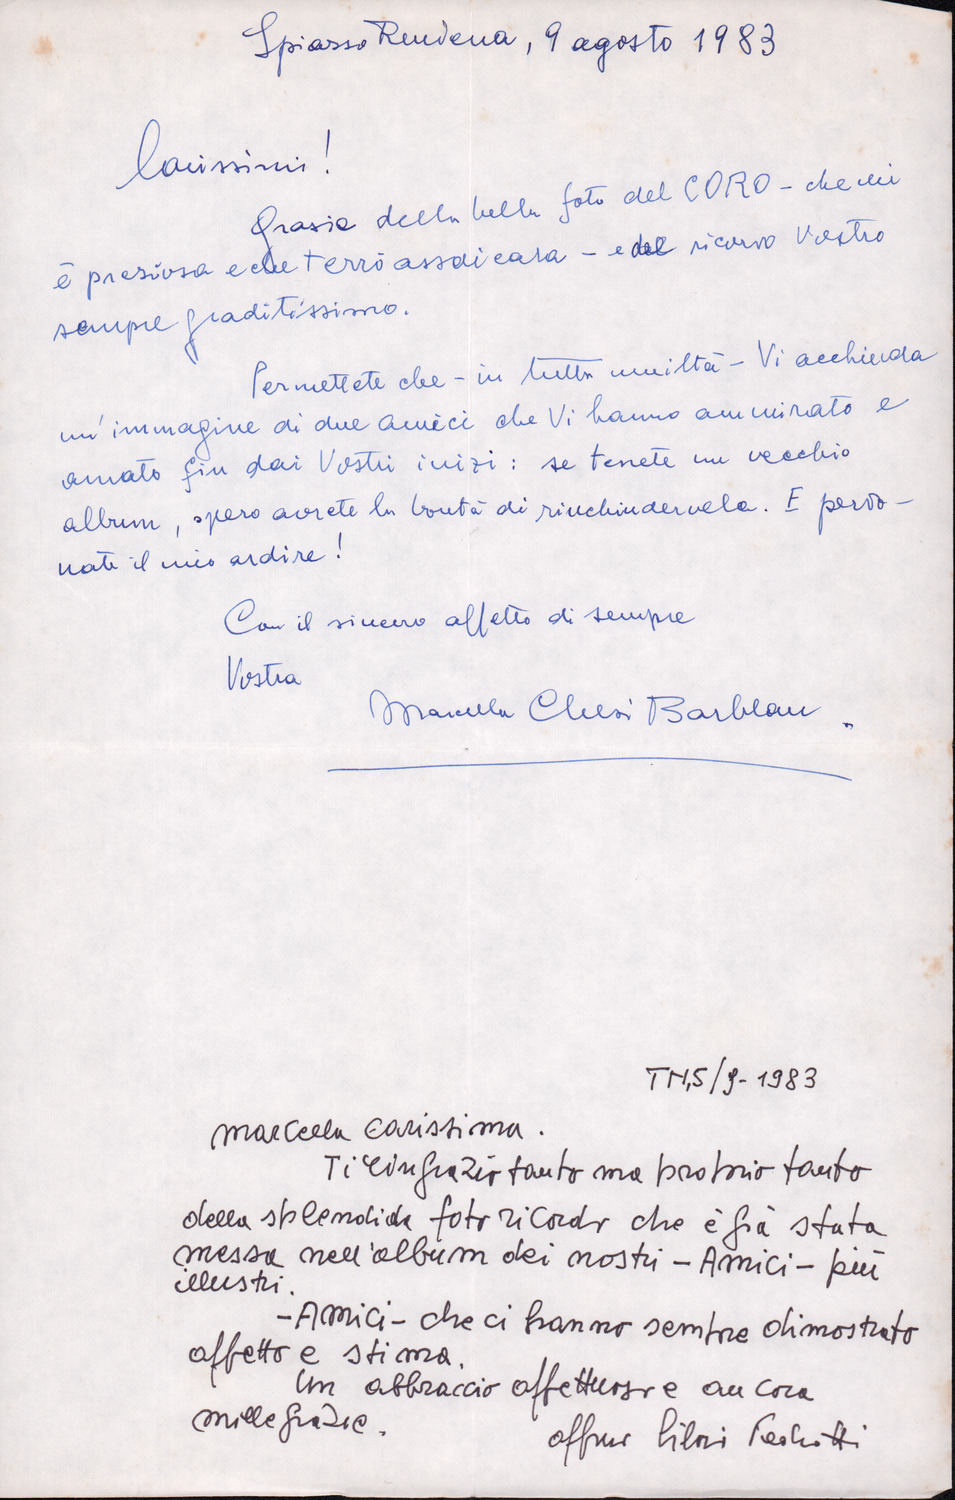 Spiasso Rendena, 9 agosto 1983
Carissimi!
Grazie della bella foto del CORO - che mi
è preziosa e che terrò assai cara - e del ricordo Vostro
sempre graditissimo.
Permettete che - in tutta umiltà - Vi acchiuda
un'immagine di due amici che Vi hanno ammirato e
amato fin dai Vostri inizi: se tenete un vecchio
album, spero avrete la bontà di rinchiudervela. E perdo-
nate il mio ardire!
Con il sincero affetto di sempre
Vostra
Marcella Chesi Barblan.
TN, 5/9-1983
Marcella carissima.
Ti ringrazio tanto ma proprio tanto
della splendida foto ricordo che è già stata
messa nell'album dei nostri - Amici - più
illustri.
- Amici - che ci hanno sempre dimostrato
affetto e stima.
Un abbraccio affettuoso e ancora
mille grazie.